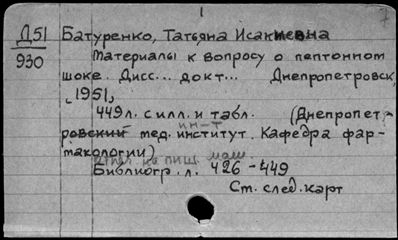 Д51
930
Батуренко, Татьяна Исакиевна
Материалы к вопросу о пептонном
шоке. Дисс... докт... Днепропетровск,
1951,
449л. с илл. и табл. (Днепропет-
ин-т
ровский мед. институт. Кафедра фар-
макологии)
Отпл. на пиш. маш.
Библиогр. л. 426-449
См. след. карт